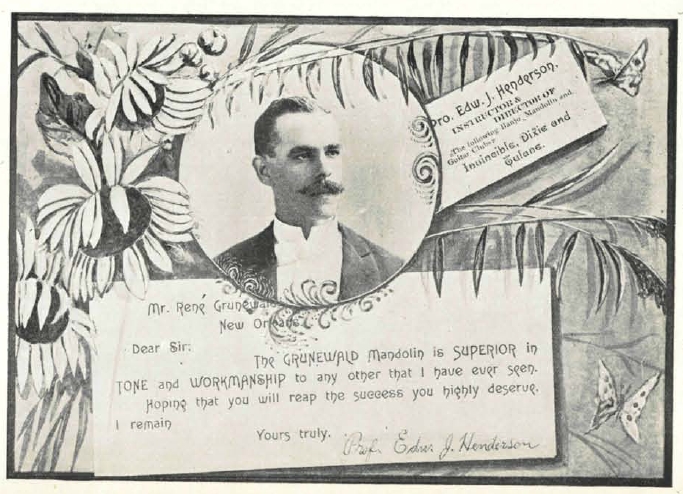 Pro. Edw. J. Henderson.
INSTRUCTOR &
DIRECTOR OF
The following Banjo, Mandolin and
Guitar Clubs:
Invincible, Dixie and
Tulane.
Mr. René Grunewald
New Orleans
Dear Sir:
The GRUNEWALD Mandolin is SUPERIOR in
TONE and WORKMANSHIP to any other that I have ever seen.
Hoping that you will reap the success you highly deserve.
I remain
Yours truly.
Prof. Edw. J. Henderson